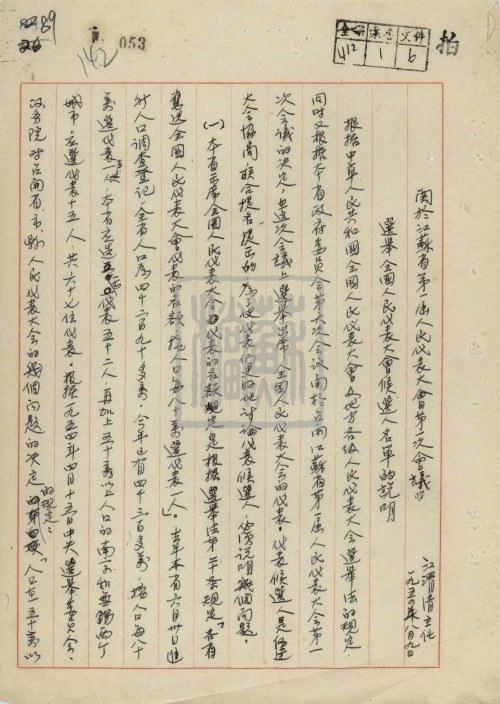 89
142
053
全宗 案卷 文件
412 1 6
拍
關於江蘇省第一届人民代表大會第一次會議
選舉全國人民代表大會候選人名單的說明
江渭清主任
一九五四年八月九日
根据中華人民共和國全國人民代表大會及地方各級人民代表大會選舉法的規定
同时又根据本省政府委員会第六次会议關於召開江蘇省第一届人民代表大会第一
次会議的决定,在这次会議上選舉出席全國人民代表大会的代表。代表候選人是經过
大会協商联合提名提出的,为了使代表们更好地讨論代表候選人,兹說明幾個問題。
(一)本省出席全國人民代表大会代表的名額是根据選舉法第二十条規定「各省
應選全國人民代表大會代表的名額,按人口每八十萬選代表一人」。去年本省六月卅日進
行人口調查登記,全省人口为四千一百九十多萬,今年已有四千三百多萬,按人口每八十
萬選代表一人,本省应選代表五十二人,再加上五十萬以上人口的南京和無錫两个
城市应選代表十五人,共六十七位代表。根据一九五四年四月十五日中央選舉委員会、
政务院对召開省、市、縣人民代表大会的幾個問題的决定的規定:「人口在五十萬以